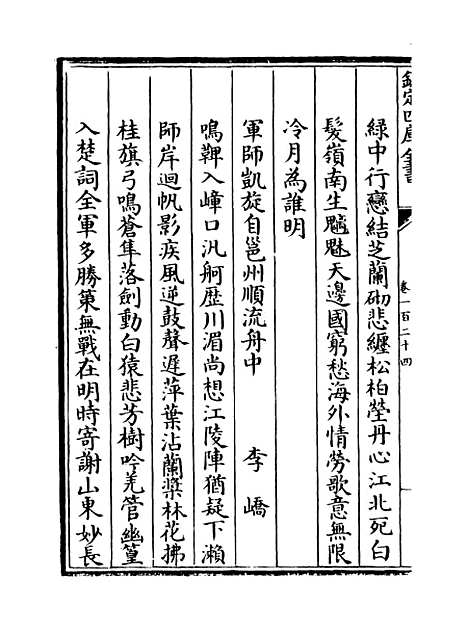 欽定四庫全書
卷一百二十四
綠中行戀結芝蘭砌悲纏松柏塋丹心江北死白
髮嶺南生魑魅天邊國窮愁海外情勞歌意無限
冷月為誰明
軍師凱旋自邕州順流舟中 李嶠
鳴鞞入嶂口汎舸歷川湄尚想江陵陣猶疑下瀨
師岸迴帆影疾風逆鼓聲遲萍葉沾蘭槳林花拂
桂旗弓鳴蒼隼落劍動白猿悲芳樹吟羌管幽篁
入楚詞全軍多勝策無戰在明時寄謝山東妙長